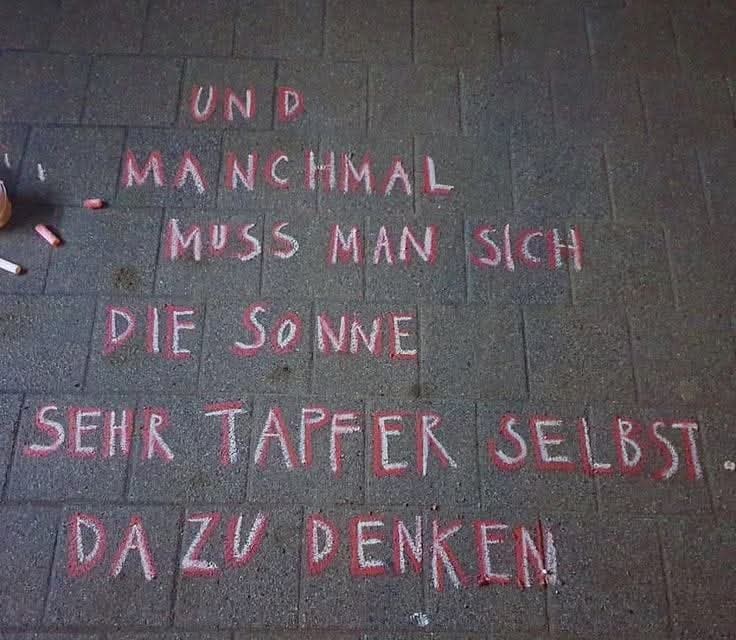 UND
MANCHMAL
MUSS MAN SICH
DIE SONNE
SEHR TAPFER SELBST
DAZU DENKEN